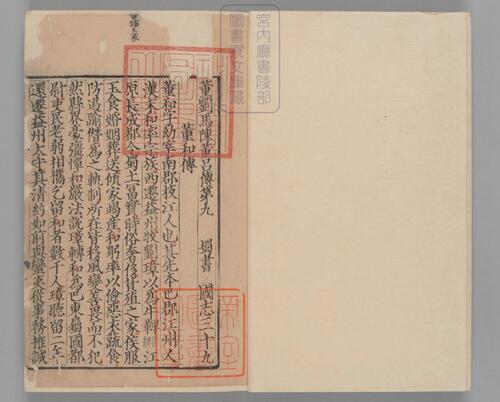 董劉馬陳董呂傳第九　蜀書　國志三十九
董和傳
董和字幼宰南郡枝江人也其先本巴郡江州人
漢末和率宗族西遷益州牧劉璋以爲牛鞞江
原長成都令蜀土富實時俗奢侈貨殖之家侯服
玉食婚姻葬送傾家竭產和躬率以儉惡衣蔬食
防遏踰僭爲之軌制所在皆移風變善畏而不犯
然縣界豪彊憚和嚴法說璋轉和爲巴東屬國都
尉吏民老弱相攜乞留和者數千人璋聽留二年
還遷益州太守其清約如前與蠻夷從事務推誠
宮內廳書陵部
圖書寮文庫藏